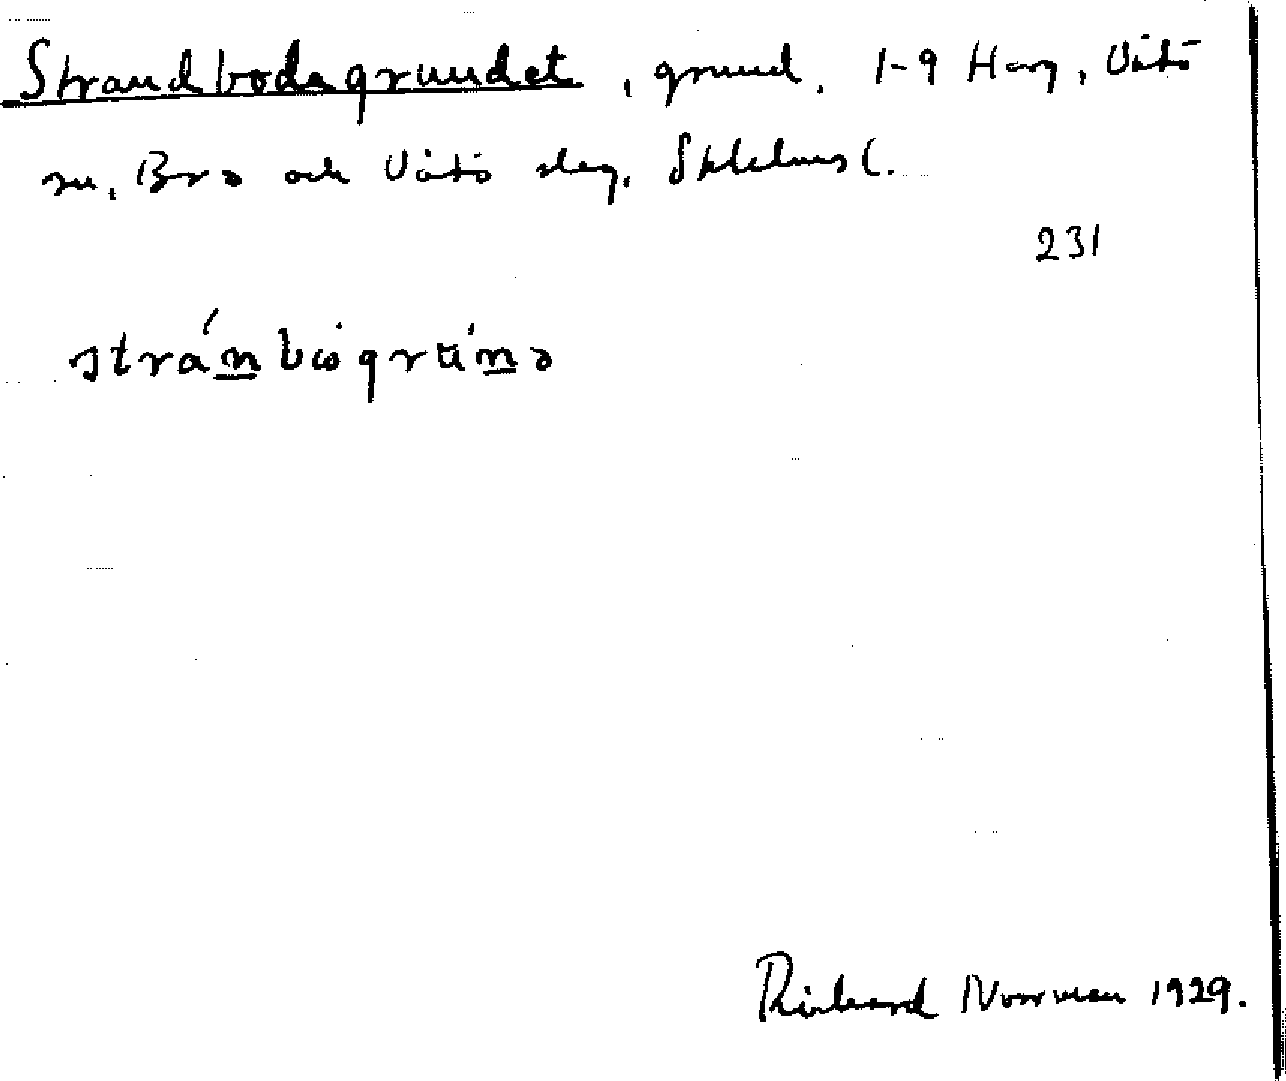 Strandbodagrundet, grund, 1-9 Harg, Vätö
sn, Bro och Vätö slag, Sthlms l.
231
Rickard Norrman 1929.